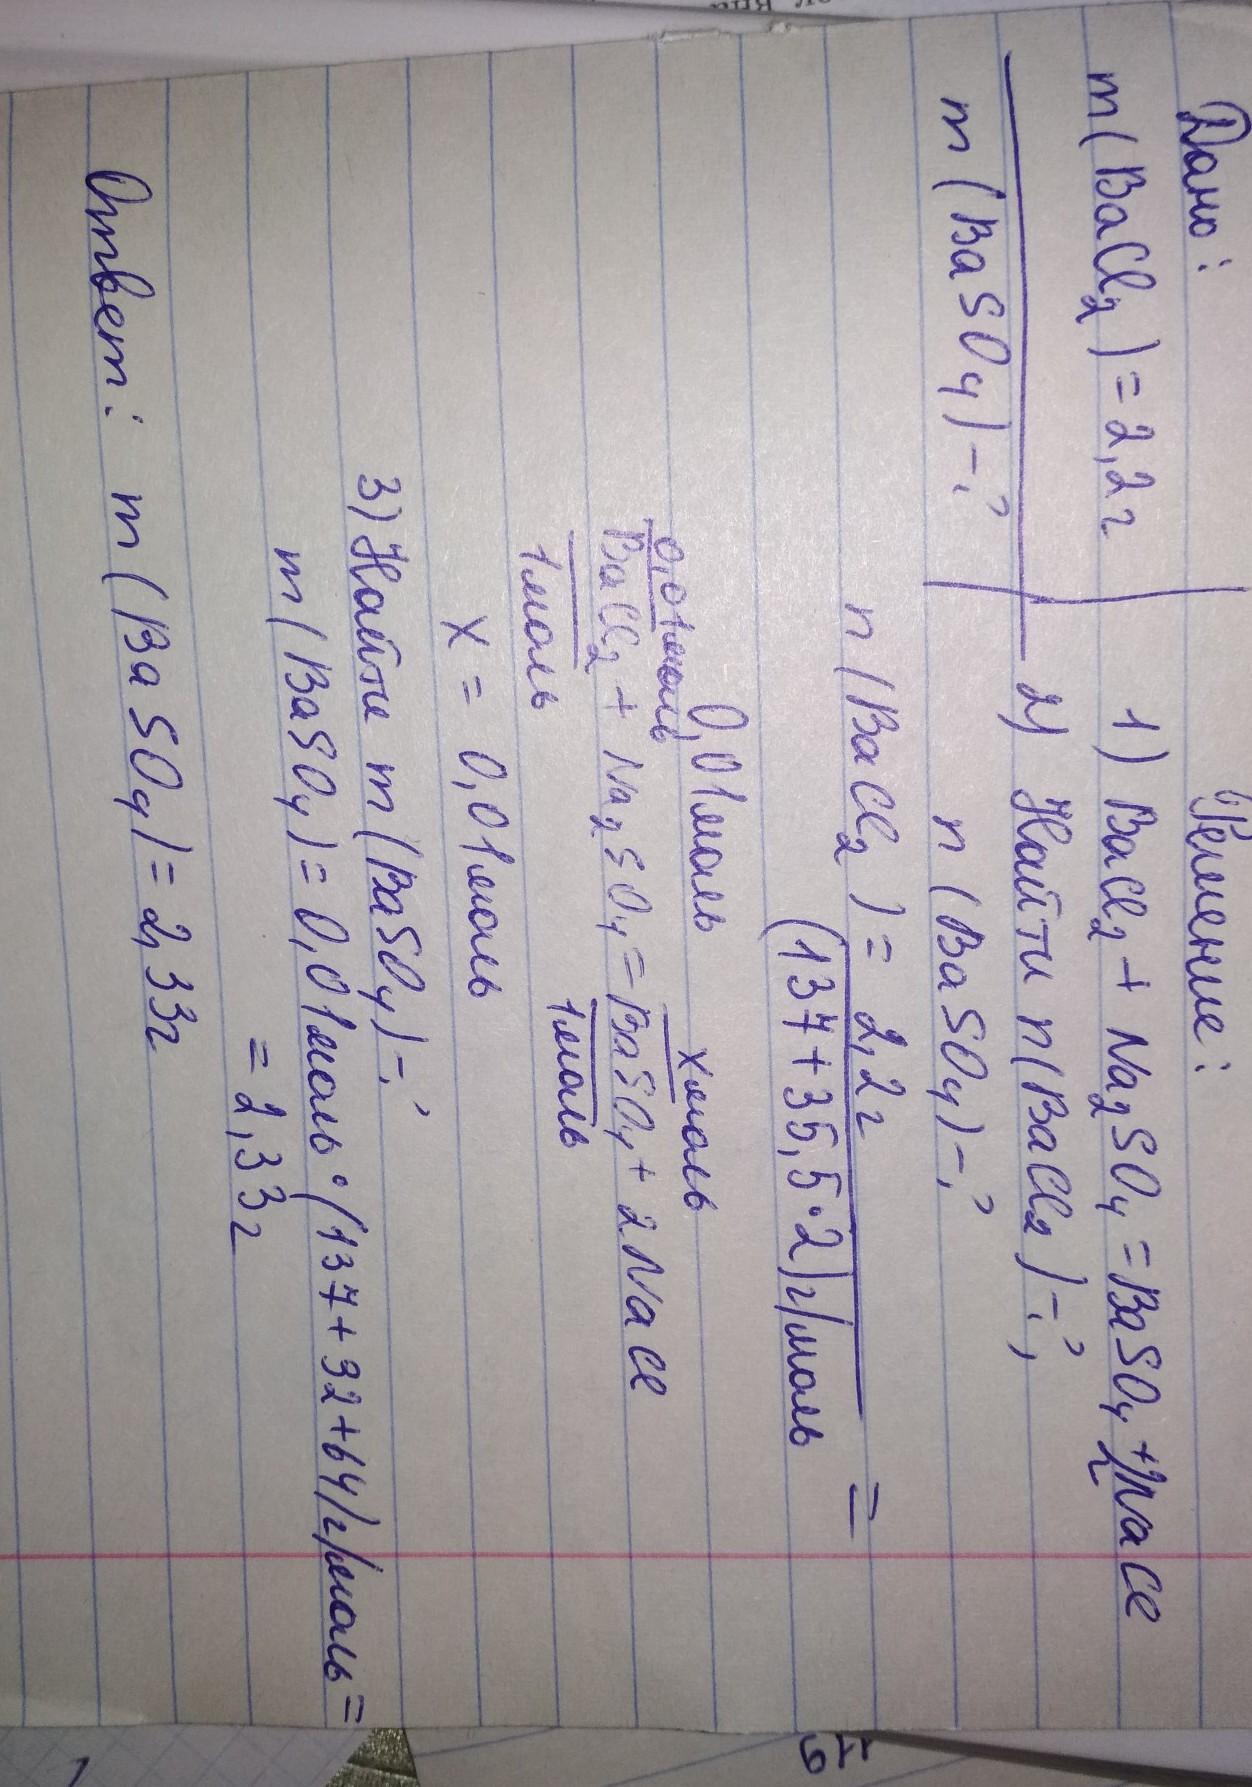 Дано:
Решение:
m(BaCl₂)=2,2г
1) BaCl₂ + Na₂SO₄ = BaSO₄ + 2NaCl
2) Найти n(BaCl₂)-?,
m(BaSO₄)-?
n(BaSO₄)-?
n(BaCl₂) = 2,2г =
(137+35,5·2)г/моль
0,01моль
0,01моль хмоль
BaCl₂ + Na₂SO₄ = BaSO₄ + 2NaCl
1моль 1моль
x = 0,01моль
3) Найти m(BaSO₄)-?
m(BaSO₄)=0,01моль·(137+32+64)г/моль=
= 2,33г
Ответ: m(BaSO₄)=2,33г